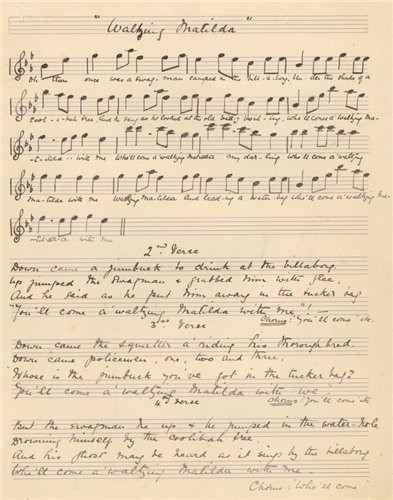 "Waltzing Matilda"
Oh there once was a swag-man camped in the bill-a-bong, Un-der the shade of a
Cool-i-bah tree, And he sang as he looked at the old billy boil-ing, who'll come a waltzing Ma-
til-da with me Who'll come a waltzing Matilda my dar-ling who'll come a waltzing
Ma-tilda with me Waltzing Matilda and lead-ing a water-bag who'll come a waltzing Ma-
-tilda with me
2nd Verse
Down came a jumbuck to drink at the billabong.
Up jumped the swagman & grabbed him with glee
And he said as he put him away in the tucker bag
"You'll come a waltzing Matilda with me"! -
Chorus: "You'll come etc.
3rd Verse
Down came the squatter a riding his thoroughbred.
Down came policemen, one, two and three.
Whose is the jumbuck you've got in the tucker bag?
You'll come a waltzing Matilda with we
Chorus: You'll come etc
4th verse
But the swagman he up & he jumped in the water-hole
Drowning himself by the Coolibah tree.
And his ghost may be heard as it sings by the billabong
Who'll come a waltzing Matilda with me.
Chorus: Who'll come